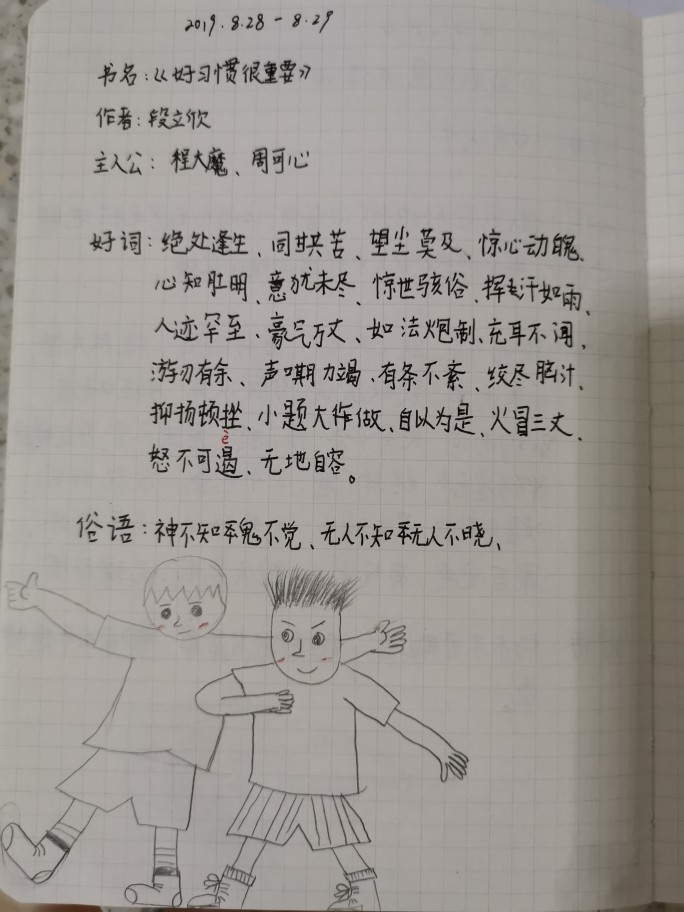 2019.8.28-8.29
书名:《好习惯很重要》
作者:段立欣
主人公:程大魔、周可心
好词:绝处逢生、同甘共苦、望尘莫及、惊心动魄、
心知肚明、意犹未尽、惊世骇俗、挥汗如雨、
人迹罕至、豪气万丈、如法炮制、充耳不闻、
游刃有余、声嘶力竭、有条不紊、绞尽脑汁、
抑扬顿挫、小题大作做、自以为是、火冒三丈、
è
怒不可遏、无地自容。
俗语:神不知鬼不觉、无人不知无人不晓、